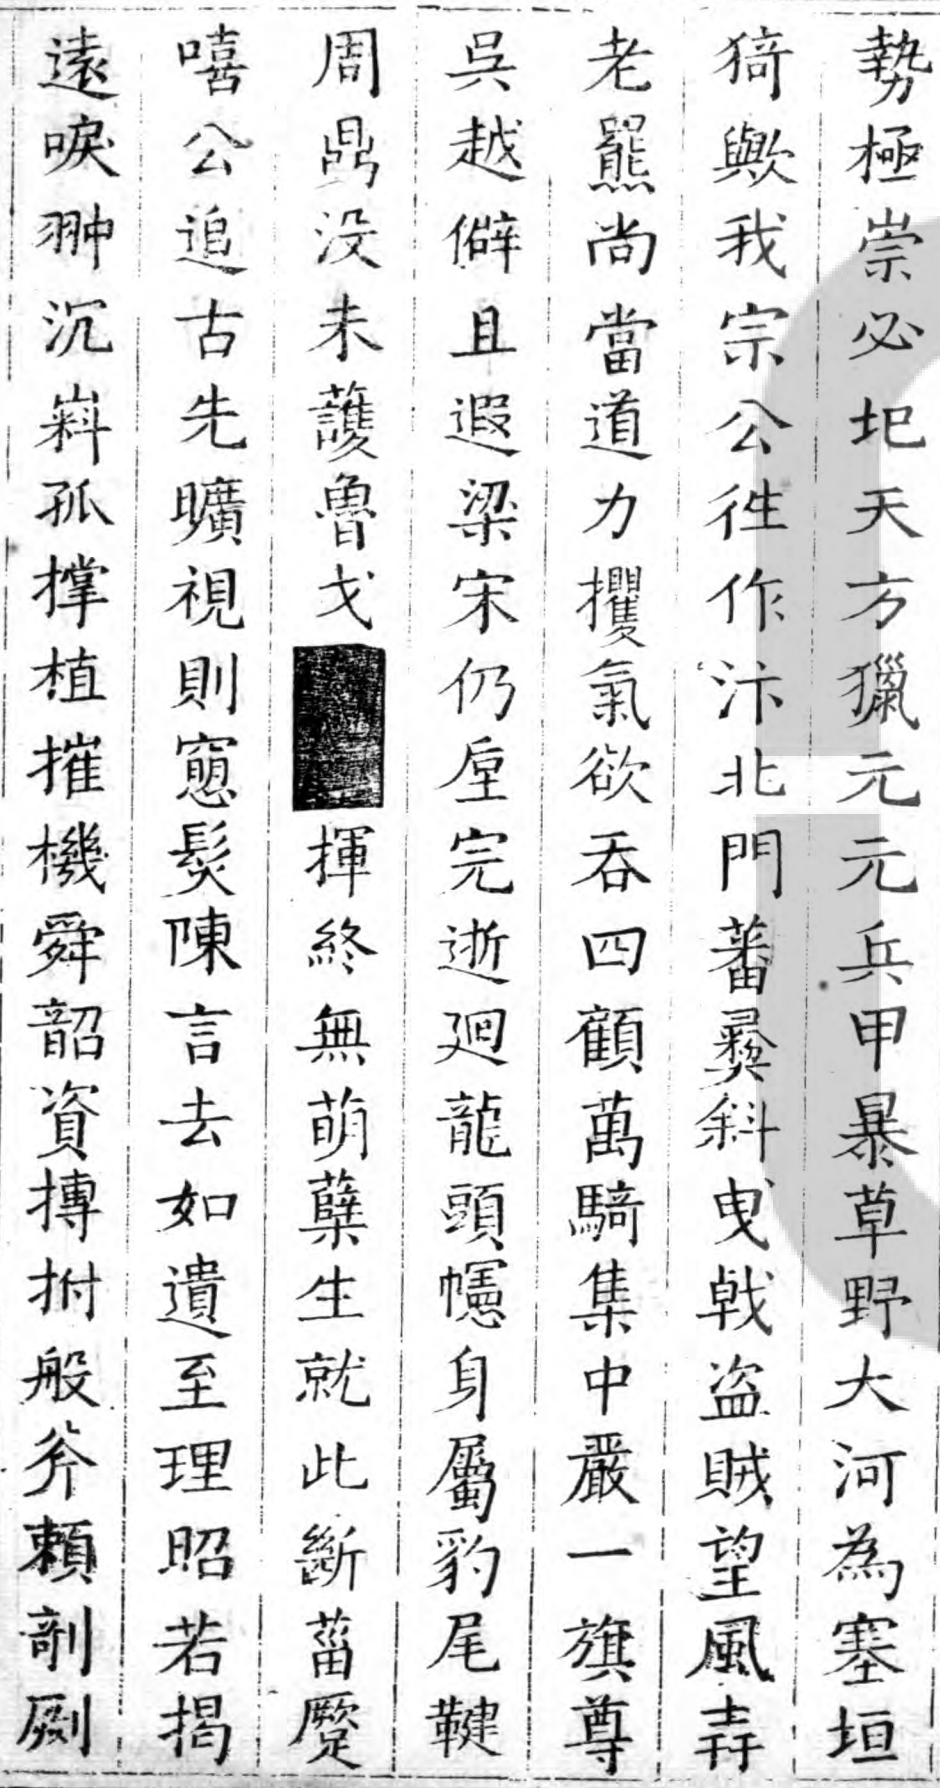 勢極崇必圯天方獵元元兵甲暴草野大河為塞垣
猗歟我宗公徃作汴北門蕃彞斜曳戟盗賊望風奔
老羆尚當道力攫氣欲吞四顧萬騎集中嚴一旗尊
吳越僻且遐梁宋仍厓完逝廻龍頭幰身屬豹尾鞬
周鼎没未蘐魯戈揮終無萌蘖生就此斷菑蹷
嘻公追古先曠視則寃髮陳言去如遺至理昭若揭
遠唳翀沉嶙孤撑植摧機舜韶資搏拊般斧賴剞劂